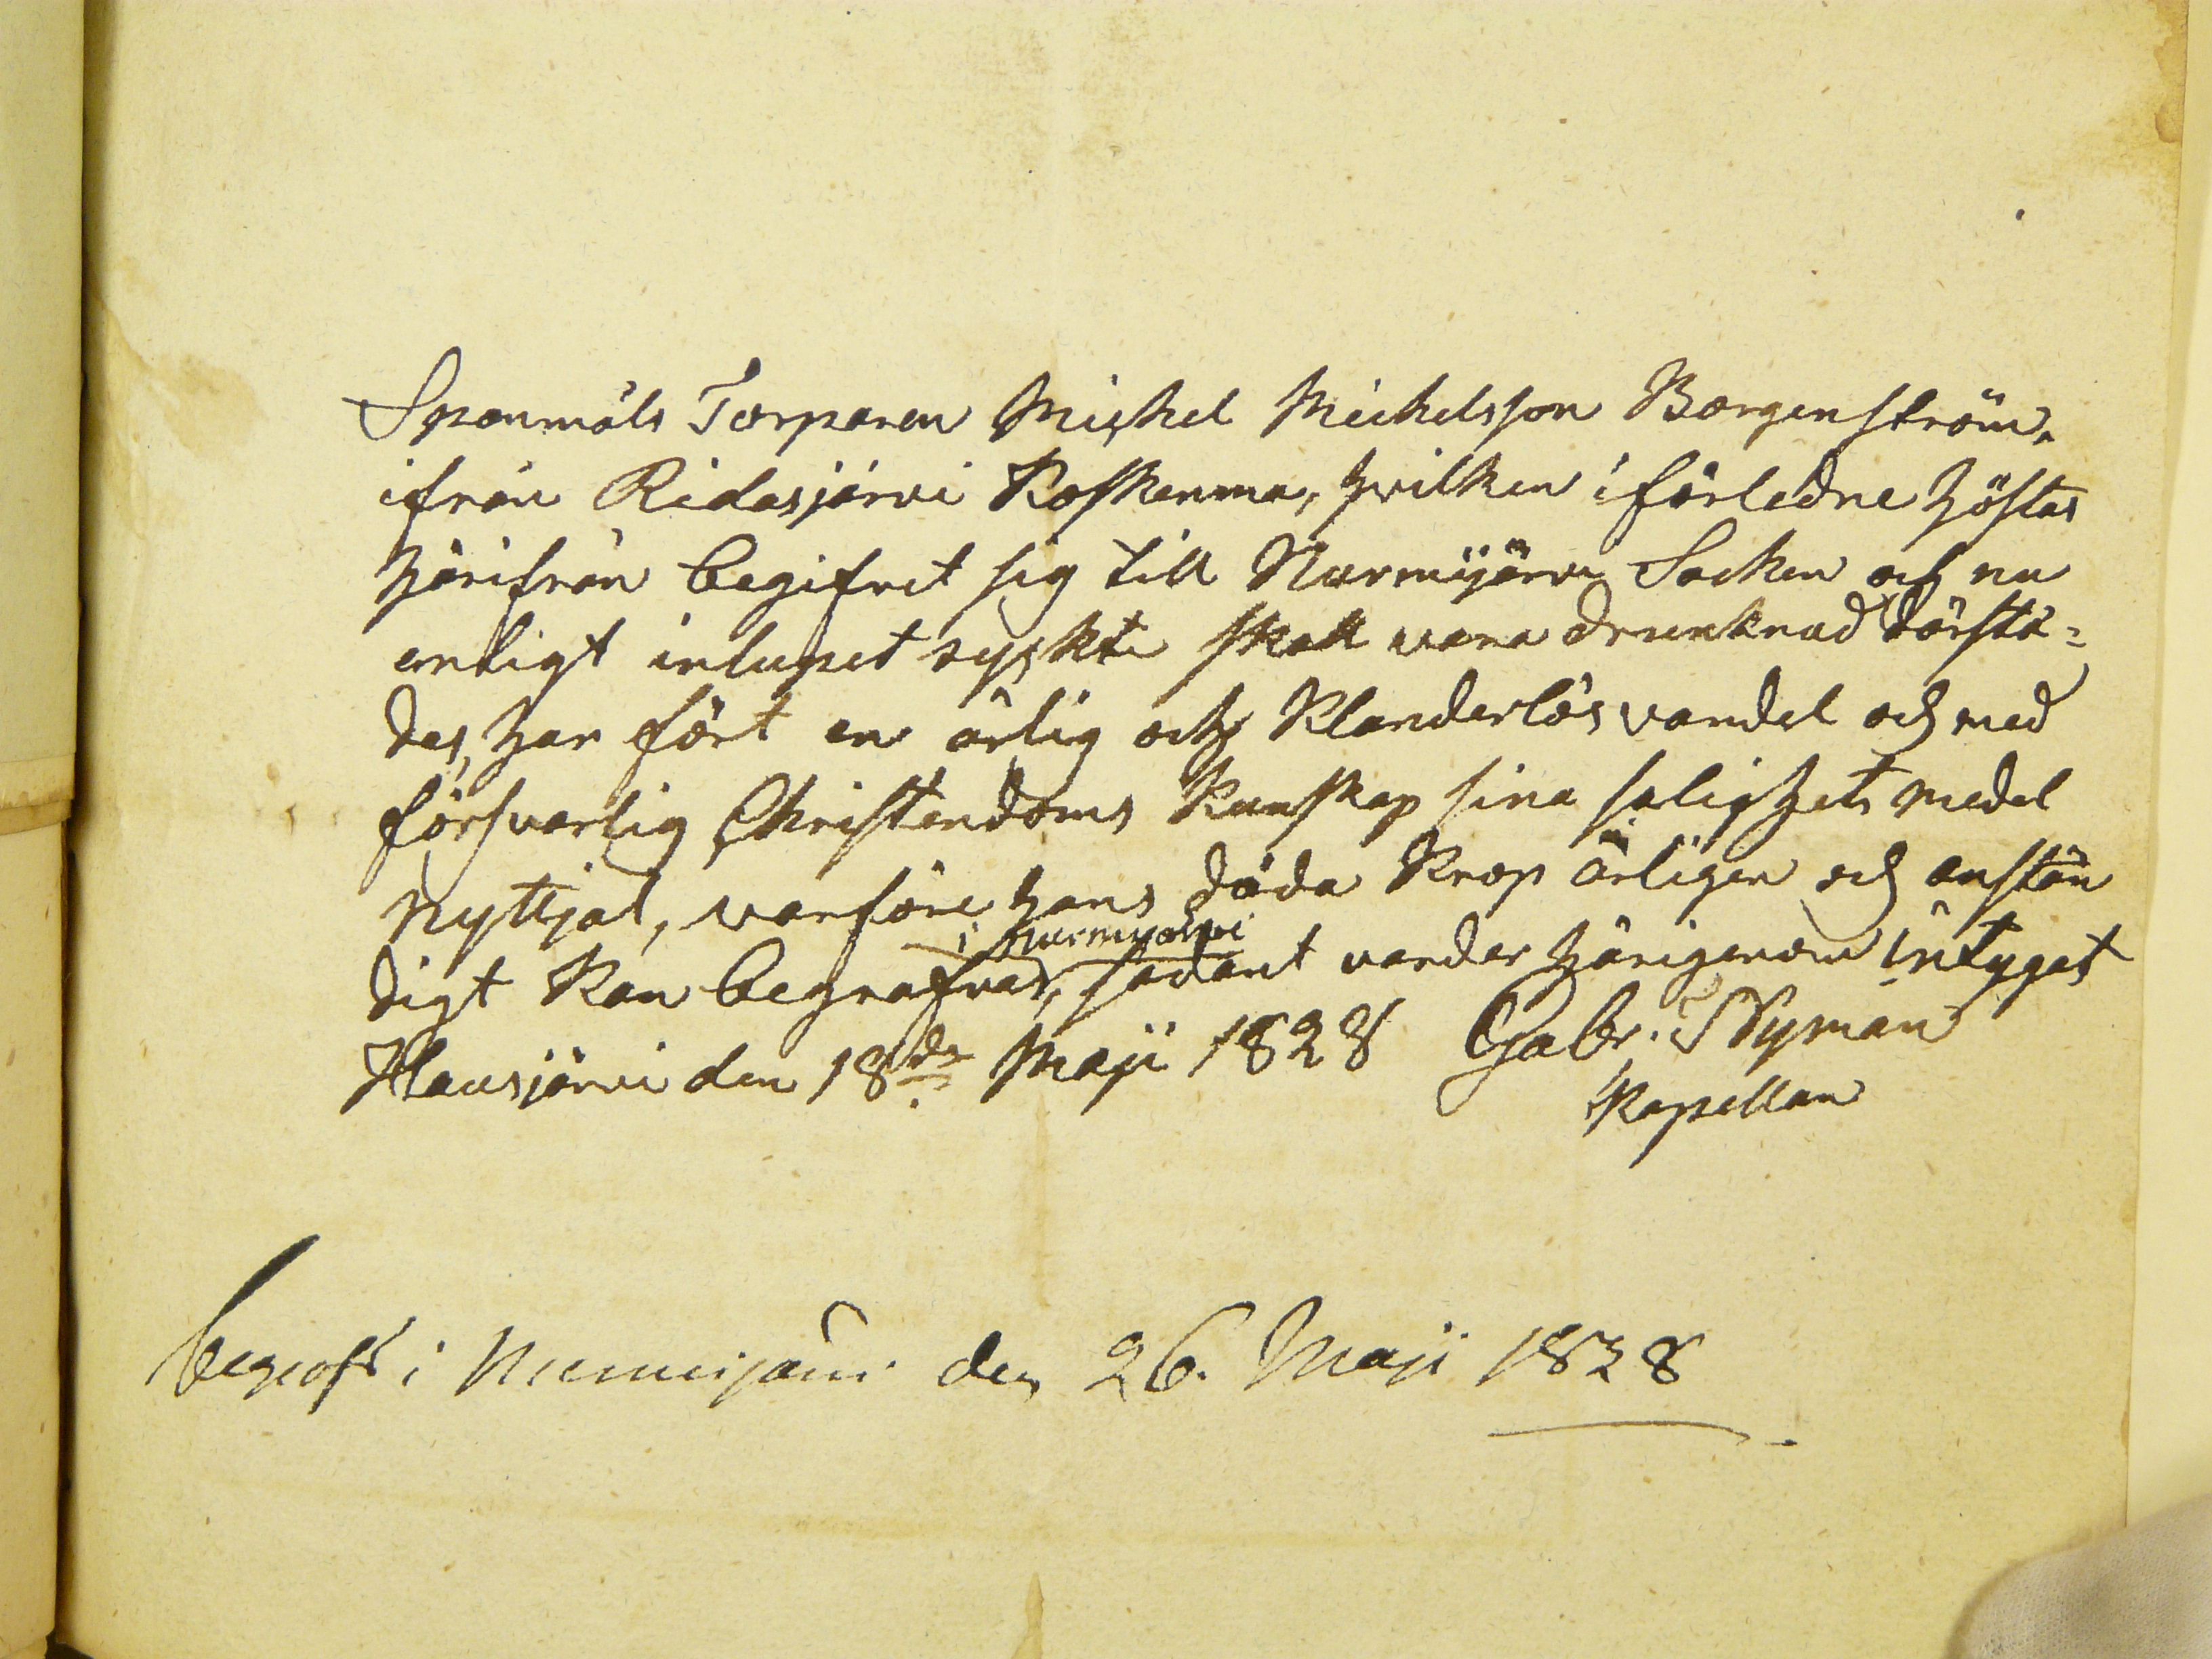 Spanmåls Torparen Michel Michelsson Borgenström,
ifrån Ridasjärvi Koskenma, hvilken i förledne höstas
härifrån begifvet sig till Nurmijärvi Socken och nu
enligt inlupet rychte skall vara drunknad därstä=
des, har fört en ärlig och klanderlös vandel och med
försvarlig Christendoms kunskap sina salighets medel
nyttjat, varföre hans döda krop ärligen och anstän
i Nurmijärvi
digt kan begrafvas, sådant varder härigenom intygat
Hausjärvi den 18de Maji 1828 Gabr. Nyman
Kapellan
begrofs i Nurmijärvi den 26. Maji 1828